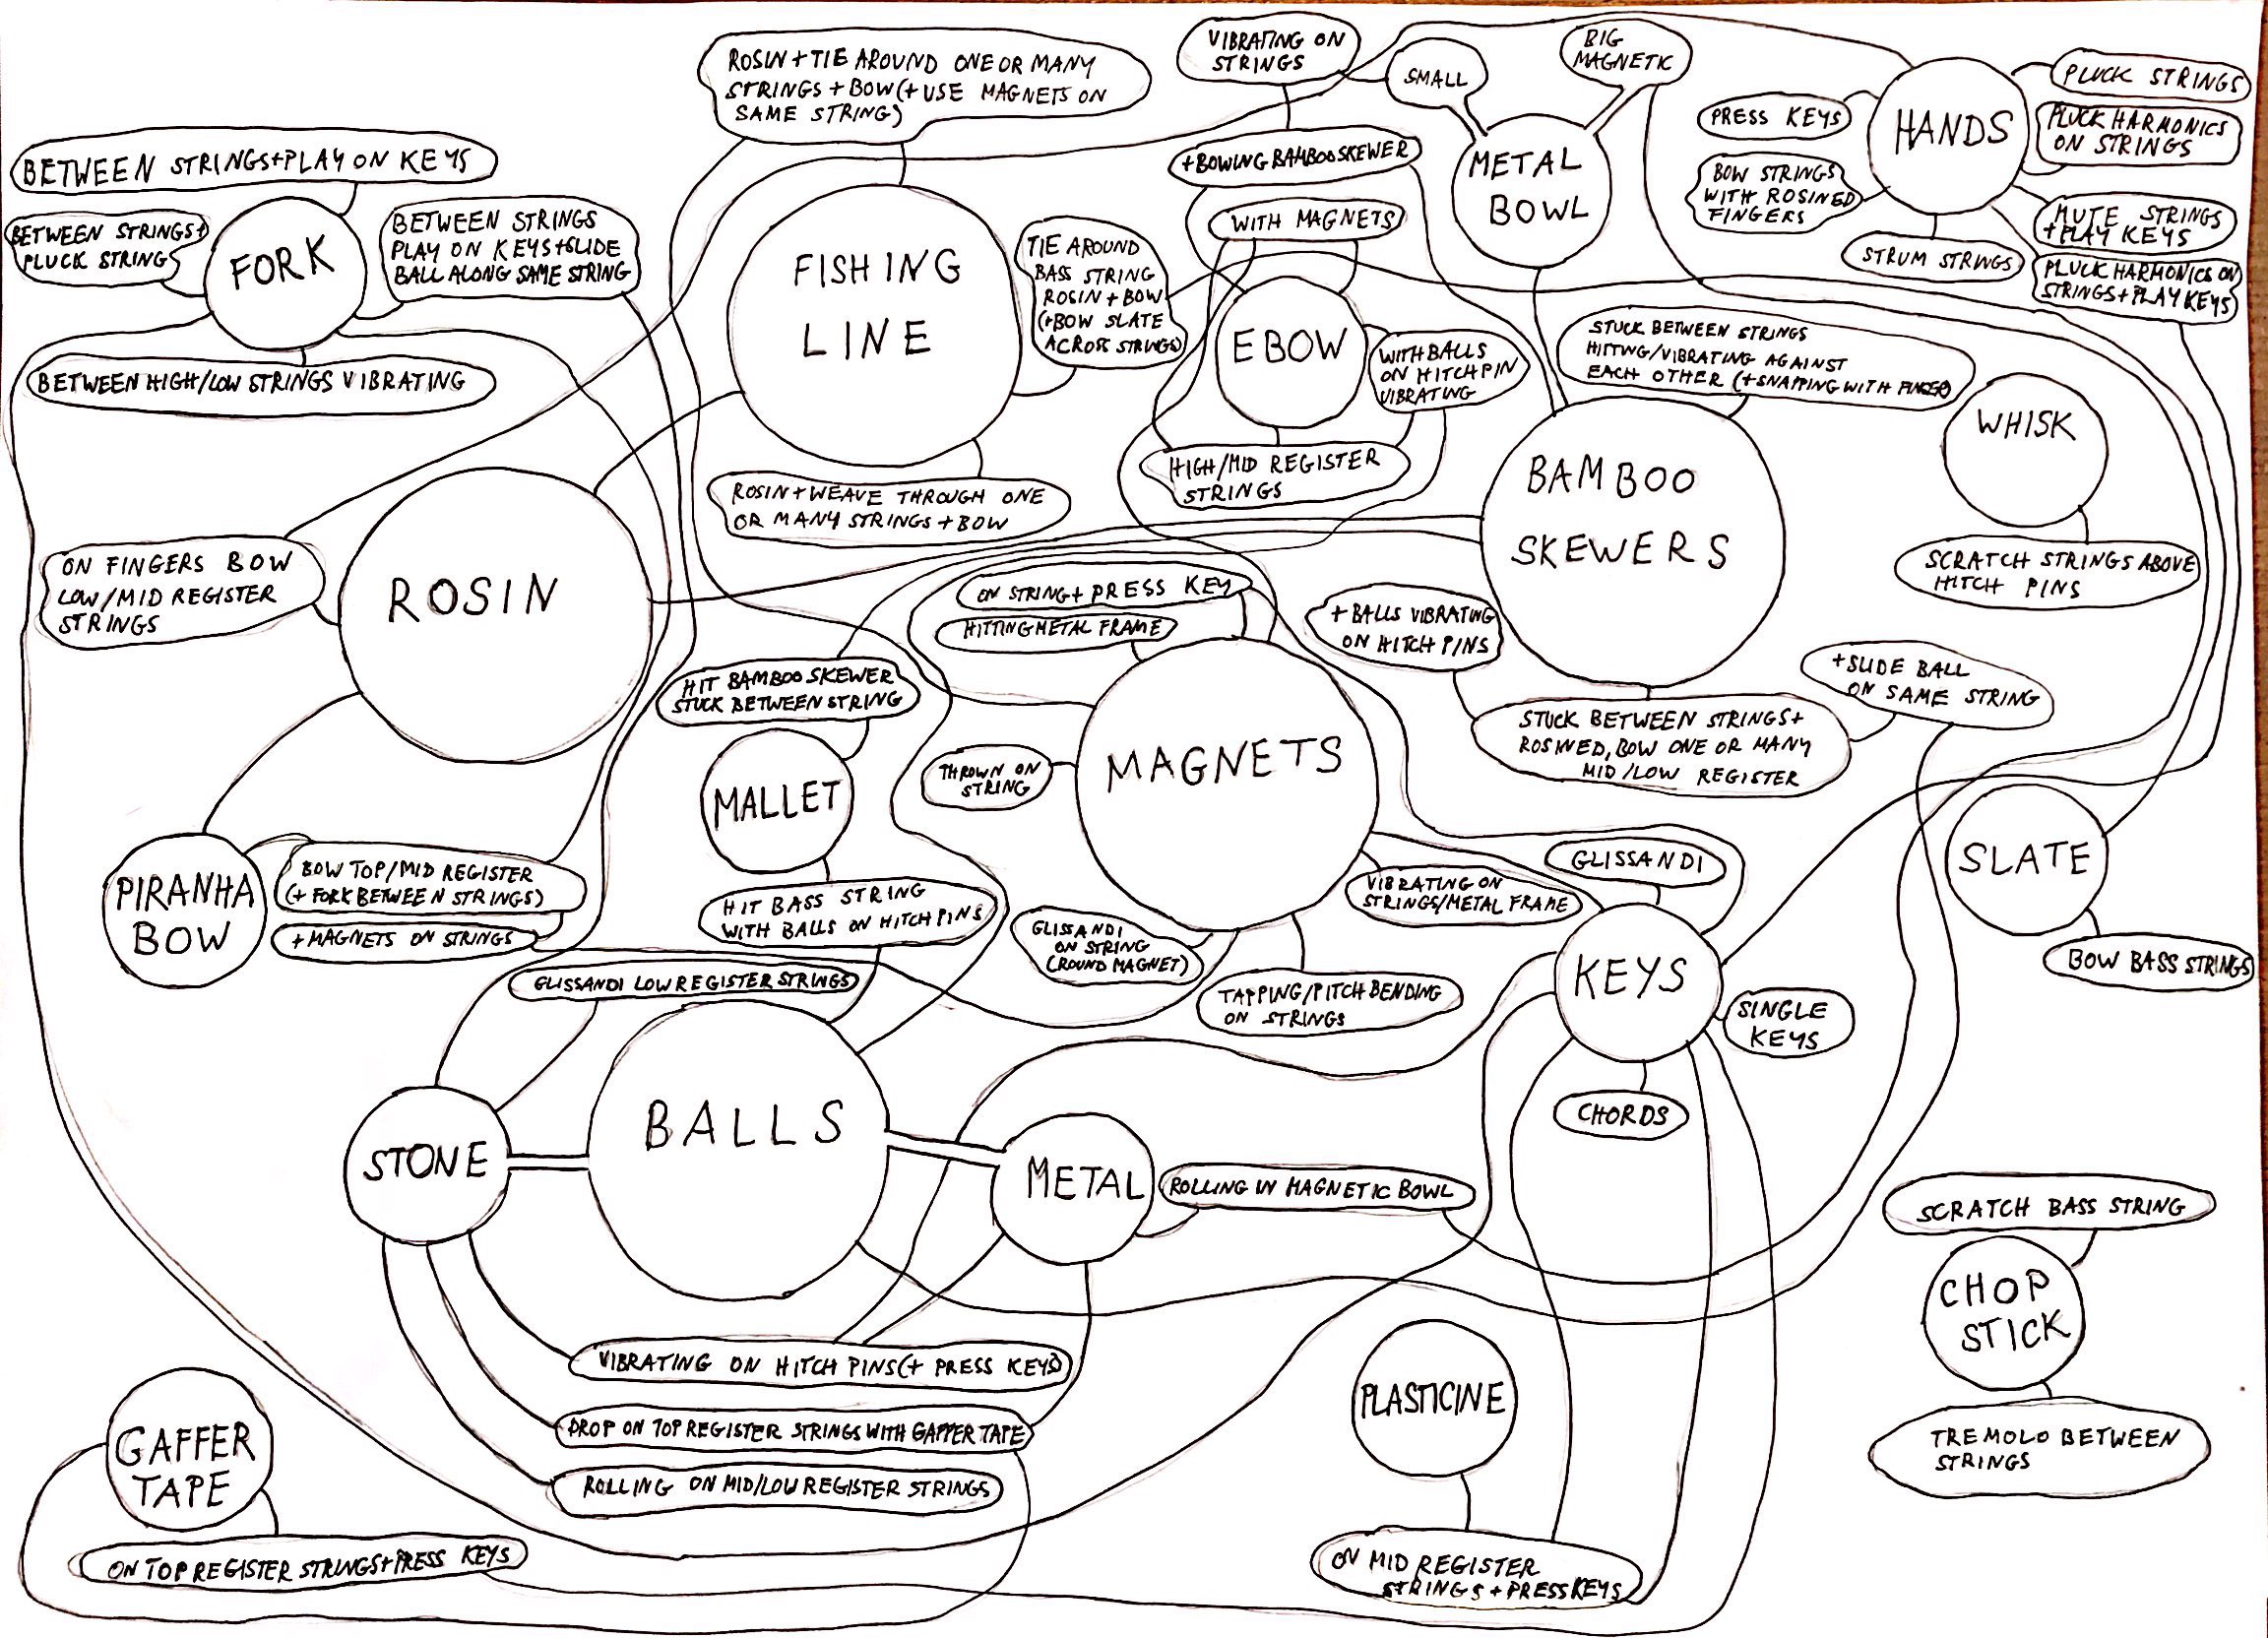 ROSIN + TIE AROUND ONE OR MANY
STRINGS + BOW (+ USE MAGNETS ON
SAME STRING)
VIBRATING ON
STRINGS
SMALL
BIG
MAGNETIC
METAL
BOWL
HANDS
PLUCK STRINGS
PRESS KEYS
PLUCK HARMONICS
ON STRINGS
BOW STRINGS
WITH ROSINED
FINGERS
MUTE STRINGS
+ PLAY KEYS
STRUM STRINGS
PLUCK HARMONICS ON
STRINGS + PLAY KEYS
BETWEEN STRINGS + PLAY ON KEYS
BETWEEN STRINGS +
PLUCK STRING
FORK
BETWEEN STRINGS
PLAY ON KEYS + SLIDE
BALL ALONG SAME STRING
BETWEEN HIGH/LOW STRINGS VIBRATING
FISHING
LINE
TIE AROUND
BASS STRING
ROSIN + BOW
(+ BOW SLATE
ACROSS STRINGS)
ROSIN + WEAVE THROUGH ONE
OR MANY STRINGS + BOW
+ BOWING BAMBOO SKEWER
WITH MAGNETS
EBOW
WITH BALLS
ON HITCH PIN
VIBRATING
HIGH/MID REGISTER
STRINGS
STUCK BETWEEN STRINGS
HITTING/VIBRATING AGAINST
EACH OTHER (+ SNAPPING WITH
BAMBOO
SKEWERS
WHISK
SCRATCH STRINGS ABOVE
HITCH PINS
ROSIN
ON FINGERS BOW
LOW/MID REGISTER
STRINGS
ON STRING + PRESS KEY
HITTING METAL FRAME
+ BALLS VIBRATING
ON HITCH PINS
+ SLIDE BALL
ON SAME STRING
STUCK BETWEEN STRINGS +
ROSINED, BOW ONE OR MANY
MID/LOW REGISTER
HIT BAMBOO SKEWER
STUCK BETWEEN STRING
MALLET
HIT BASS STRING
WITH BALLS ON HITCH PINS
MAGNETS
THROWN ON
STRING
GLISSANDI
ON STRING
(ROUND MAGNET)
TAPPING/PITCH BENDING
ON STRINGS
VIBRATING ON
STRINGS/METAL FRAME
PIRANHA
BOW
BOW TOP/MID REGISTER
(+ FORK BETWEEN STRINGS)
+ MAGNETS ON STRINGS
GLISSANDI
KEYS
SINGLE
KEYS
CHORDS
SLATE
BOW BASS STRINGS
GLISSANDI LOW REGISTER STRINGS
STONE
BALLS
METAL
ROLLING IN MAGNETIC BOWL
VIBRATING ON HITCH PINS (+ PRESS KEYS)
DROP ON TOP REGISTER STRINGS WITH GAFFER TAPE
ROLLING ON MID/LOW REGISTER STRINGS
SCRATCH BASS STRING
CHOP
STICK
TREMOLO BETWEEN
STRINGS
PLASTICINE
ON MID REGISTER
STRINGS + PRESS KEYS
GAFFER
TAPE
ON TOP REGISTER STRINGS + PRESS KEYS